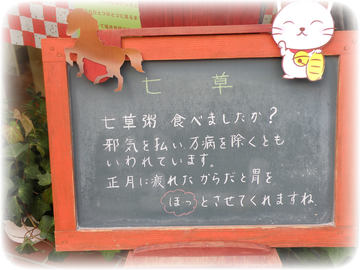 七草
七草粥 食べましたか?
邪気を払い万病を除くとも
いわれています。
正月に疲れたからだと胃を
ほっとさせてくれますね